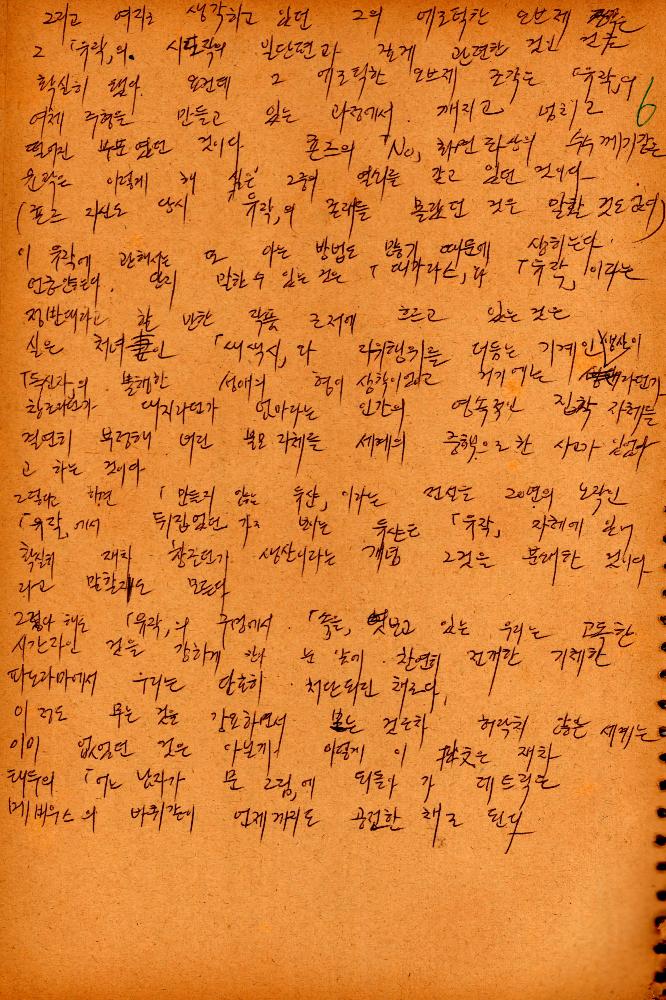 그리고 여지로 생각하고 있던 그의 에로틱한 오브제
그 「유락」의 시포락의 일단면과 깊게 관련한 것인
확실히 했다. 요컨데 그 에로틱한 오브제 조각은 「유락」의
6
여체 주형을 만들고 있는 과정에서 깨지고 넘치고
떨어진 였던 것이다 존즈의 「No」, 화면 하단의 수수께끼같은
윤곽은 이렇게 해 실은 2중의 열쇠를 갖고 있던 것이다
(존즈 자신도 당시 「유락」의 존재를 몰랐던 것은 말할 것도 없다)
이 유락에 관해서는 또 아는 방법도 많기 때문에 생히는다.
언급한다. 단지 말할 수 있는 것은 「대가라스」다 「유락」이라는
정반대라고 할 만한 작품 근저에 흐르고 있는 것은
실은 처녀妻인 「새색시」다 자위행위를 더듬는 기계인 생산이
「독신자」의 불행한 성애의 형이 상학이었고 거기에는 라던가
창조라던가 대지라던가 없이라는 인간의 영속적인 집착 자체를
결연히 부정해 버린 불모 자체를 세계의 중핵으로 한 사고가 있었다
고 하는 것이다
그렇다 하면 「만들지 않는 뒤샹」이라는 전설은 20년의 노작인
「유락」에서 뒤집었던 가고 뒤샹은 「유락」 자체에 있어
확실히 재차 창조던가 생산이라는 개념 그것을 분쇄한 것이다
라고 말할지도 모른다
그렇다 해도 「유락」의 구멍에서 「죽음」 엿보고 있는 우리는 고독한
시간라인 것을 강하게 한다 눈 앞에 찬연히 전개한 기괴한
파노라마에서 우리는 단호히 처단되린 채로다,
이 정도 무는 것을 강요하면서 보는 것조차 허락치 않는 세계는
이미 없었던 것은 아닐까. 이렇게 이 拙文은 재차
태두의 「어느 남자가 문 그림」에 되돌아 가 데트릭은
메비우스의 바퀴같이 언제까지도 공전한 채로 된다